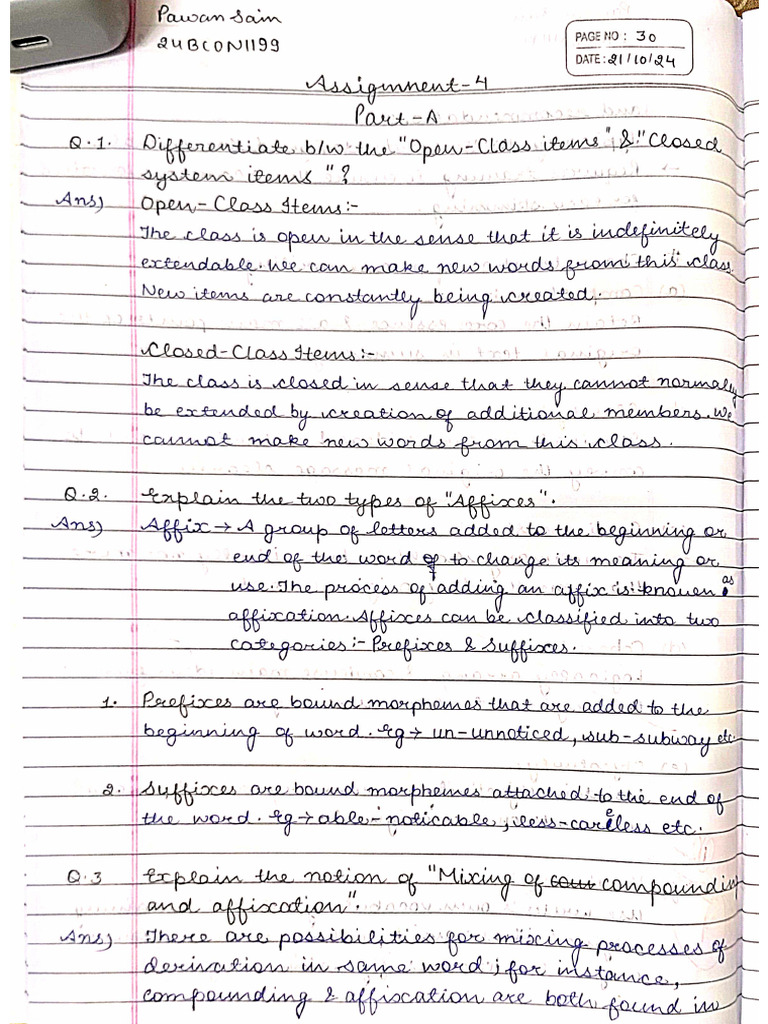 Pawan Sain
24BCON1199
PAGE NO: 30
DATE: 21/10/24
Assignment-4
Part-A
Q.1. Differentiate b/w the "Open-Class items" & "Closed
system items"?
Ans) Open-Class Items:-
The class is open in the sense that it is indefinitely
extendable. We can make new words from this class.
New items are constantly being created.
Closed-Class Items:-
The class is closed in sense that they cannot normaly
be extended by creation of additional members. We
cannot make new words from this class.
Q.2. Explain the two types of "Affixes".
Ans) Affix → A group of letters added to the beginning or
end of the word to change its meaning or
use. The process of adding an affix is knowen as
affixation. Affixes can be classified into two
categories:- Prefixes & Suffixes.
1. Prefixes are bound morphemes that are added to the
beginning of word. Eg → un-unnoticed, sub-subway etc.
2. Suffixes are bound morphemes attached to the end of
the word. Eg → able-noticable, less-careless etc.
Q.3 Explain the notion of "Mixing of compounding
and affixation".
Ans) There are possibilities for mixing processes of
derivation in same word; for instance,
compounding & affixcation are both found in